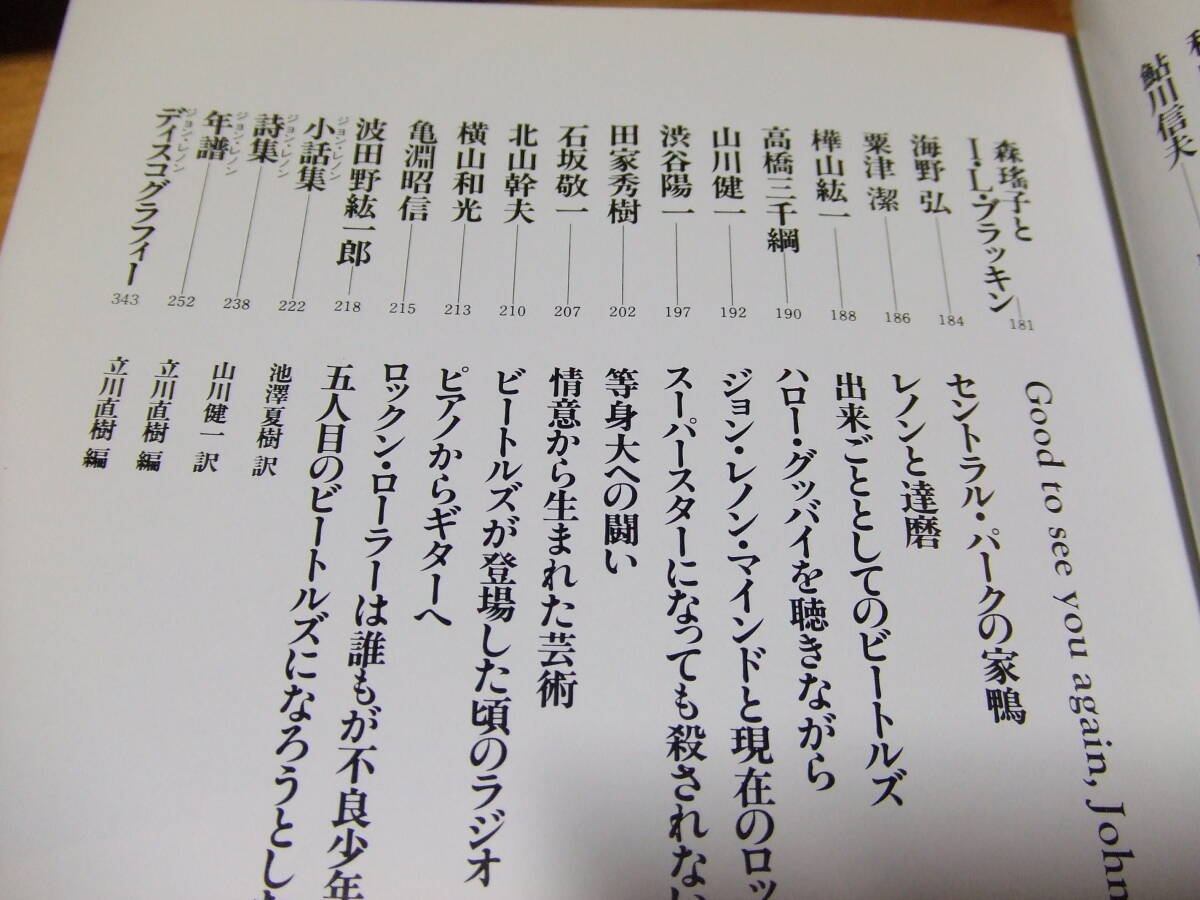 鮎川信夫
森瑤子と
I・L・ブラッキン 181 Good to see you again, John
海野 弘 184 セントラル・パークの家鴨
粟津 潔 186 レノンと達磨
樺山紘一 188 出来ごととしてのビートルズ
高橋三千綱 190 ハロー・グッバイを聴きながら
山川健一 192 ジョン・レノン・マインドと現在のロッ
渋谷陽一 197 スーパースターになっても殺されない
田家秀樹 202 等身大への闘い
石坂敬一 207 情意から生まれた芸術
北山幹夫 210 ビートルズが登場した頃のラジオ
横山和光 213 ピアノからギターへ
亀淵昭信 215 ロックン・ローラーは誰もが不良少年
波田野紘一郎 218 五人目のビートルズになろうとした
ジョン・レノン
小話集 222 池澤夏樹 訳
ジョン・レノン
詩集 238 山川健一 訳
ジョン・レノン
年譜 252 立川直樹 編
ジョン・レノン
ディスコグラフィー 343 立川直樹 編